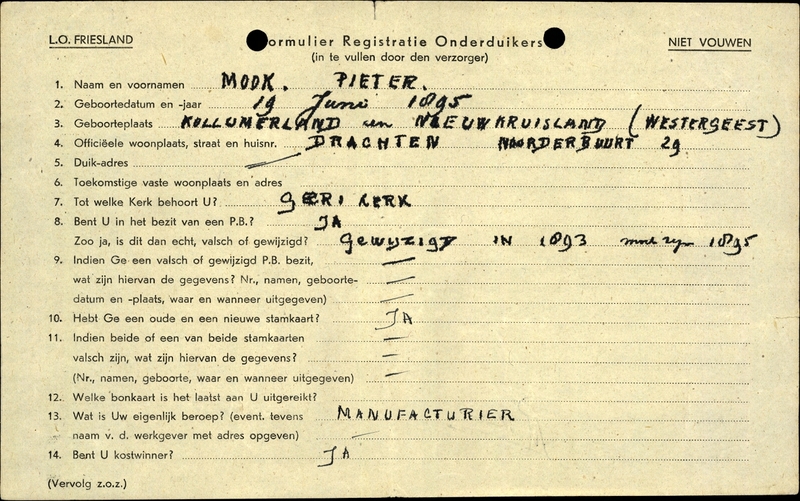 L.O. FRIESLAND
ormulier Registratie Onderduikers
NIET VOUWEN
(in te vullen door den verzorger)
1. Naam en voornamen MOOK. PIETER.
2. Geboortedatum en -jaar 19 Juni 1895
3. Geboorteplaats KOLLUMERLAND en NIEUWKRUISLAND (WESTERGEEST)
4. Officiëele woonplaats, straat en huisnr. DRACHTEN NOORDERBUURT 29
5. Duik-adres
6. Toekomstige vaste woonplaats en adres
7. Tot welke Kerk behoort U? GERE KERK
8. Bent U in het bezit van een P.B.? JA
Zoo ja, is dit dan echt, valsch of gewijzigd? Gewijzigd IN 1893 moet zijn 1895
9. Indien Ge een valsch of gewijzigd P.B. bezit,
wat zijn hiervan de gegevens? Nr., namen, geboorte-
datum en -plaats, waar en wanneer uitgegeven)
10. Hebt Ge een oude en een nieuwe stamkaart? JA
11. Indien beide of een van beide stamkaarten
valsch zijn, wat zijn hiervan de gegevens?
(Nr., namen, geboorte, waar en wanneer uitgegeven)
12. Welke bonkaart is het laatst aan U uitgereikt?
13. Wat is Uw eigenlijk beroep? (event. tevens MANUFACTURIER
naam v. d. werkgever met adres opgeven)
14. Bent U kostwinner? JA
(Vervolg z.o.z.)